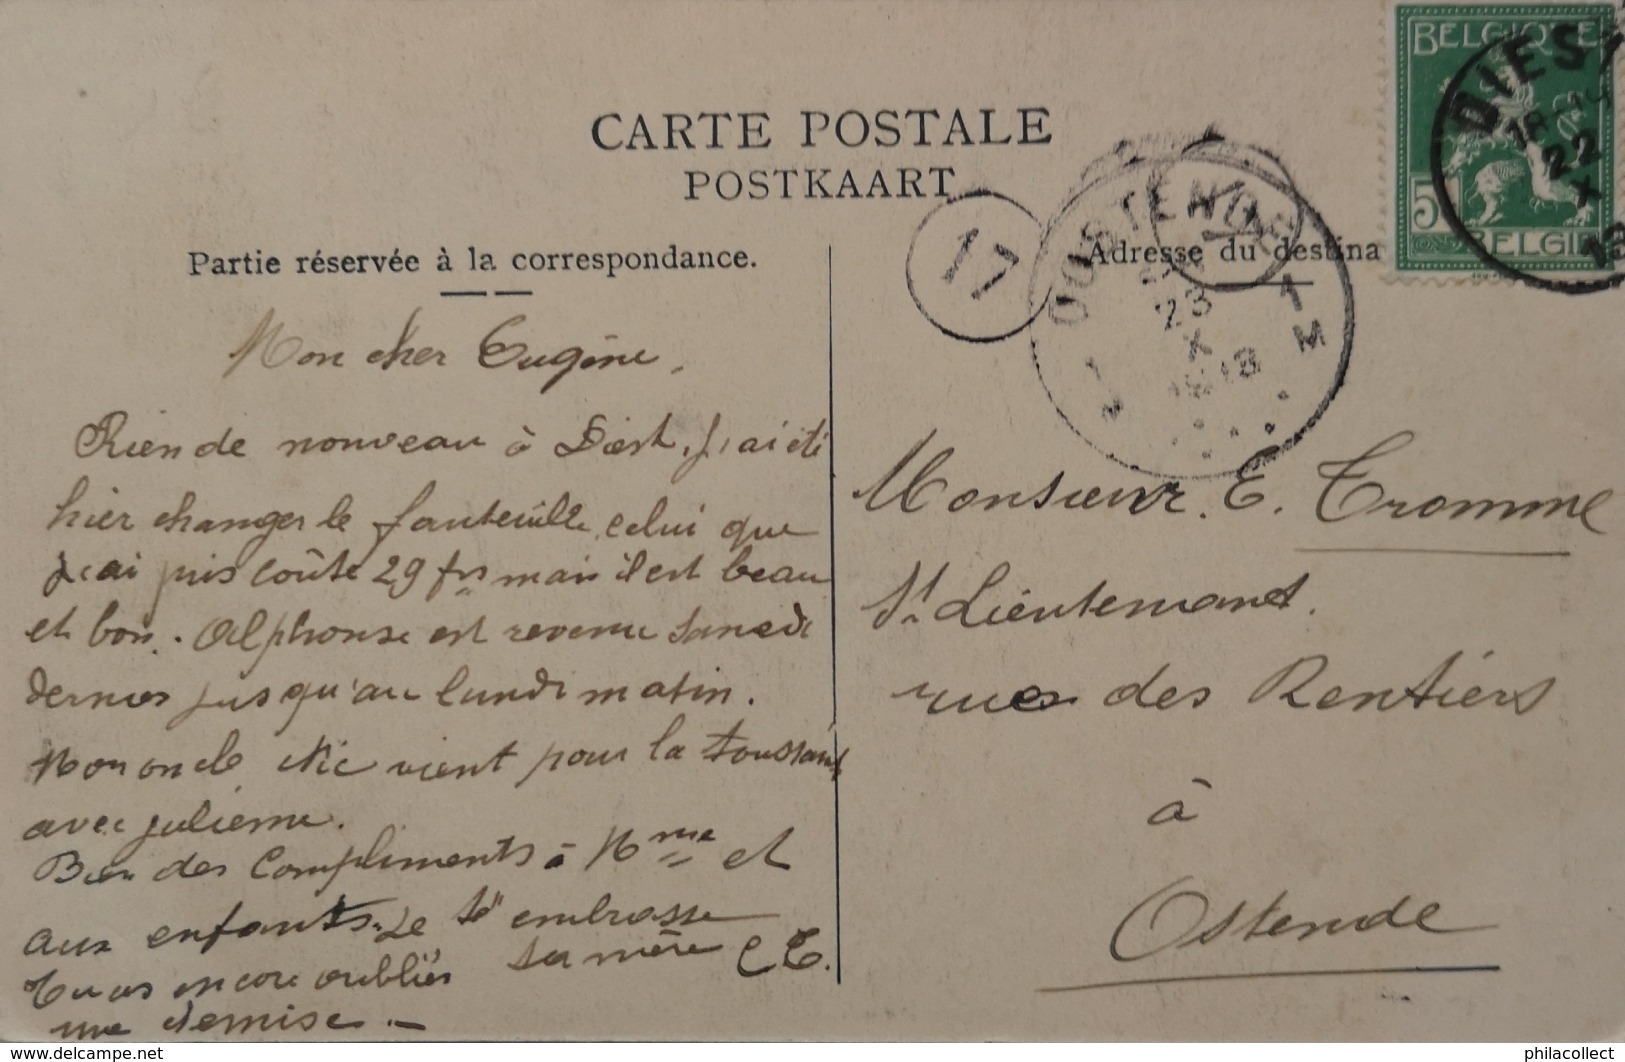 CARTE POSTALE
POSTKAART
Partie réservée à la correspondance.
Adresse du destina
BELGIQUE
5
BELGIE
DIEST
18
22
X
13
17
OOSTENDE
1
M
23
X
1
Mon cher Eugène,
Rien de nouveau à Diest, j'ai été
hier changer le fauteuille, celui que
j'ai pris coûte 29 frs mais il est beau
et bon. Alphonse est revenu samedi
dernier jusqu'au lundi matin.
Mon oncle Nic vient pour la toussaint
avec julienne.
Bien des Compliments à Mme et
aux enfants. Je t'embrasse
ta mère C E.
Tu as encore oubliés
une chemise.
Monsieur. E. Tromme
St Lieutemant.
rue des Rentiers
à
Ostende
https://www.delcampe.net
philacollect